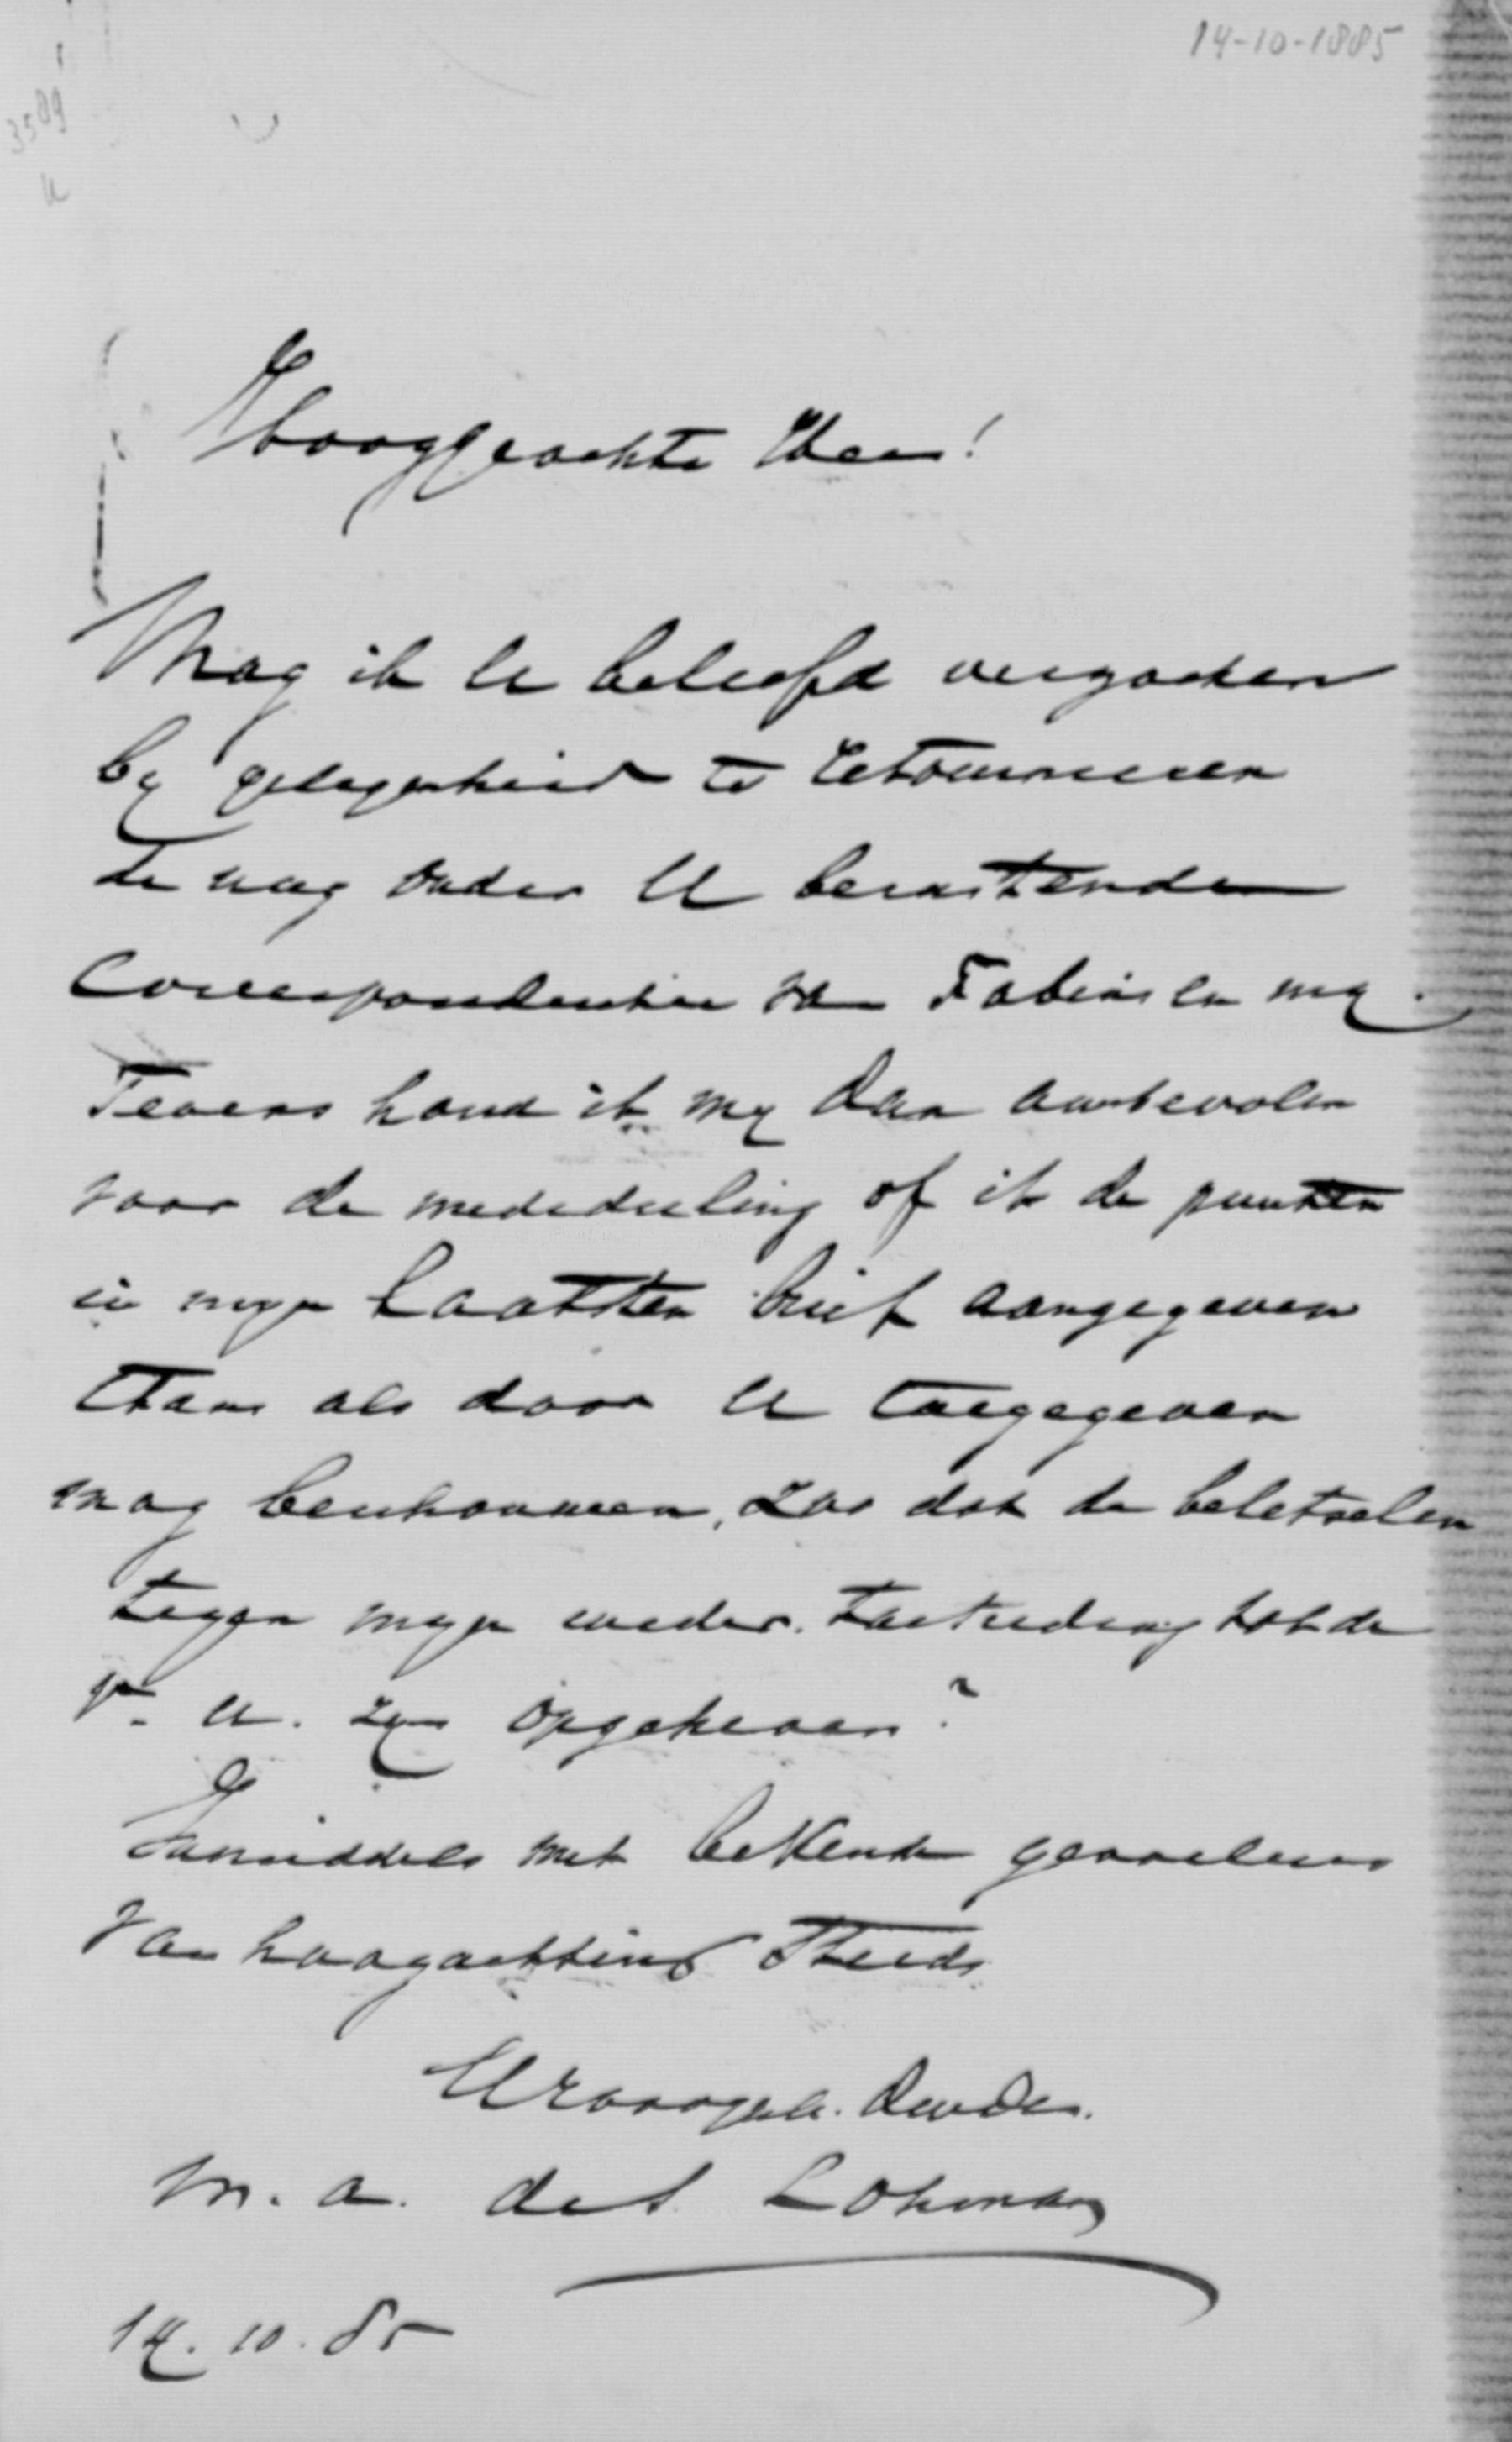 14-10-1885
3589
u
Hooggeachte Heer!
Mag ik U beleefd verzoeken
by gelegenheid te retourneeren
de nog onder U berustende
Correspondentie van Fabius en my.
Tevens houd ik my dan aanbevolen
voor de mededeeling of ik de punten
in myn laatsten brief aangegeven
thans als door U toegegeven
mag beschouwen, zoo dat de beletselen
tegen myn weder. toetreding tot de
V. U. zyn opgeheven?
Inmiddels met bekende gevoelens
van hoogachting steeds
Uw Hooggeb. dw. dr.
M. A. de S. Lohman
14. 10. 85